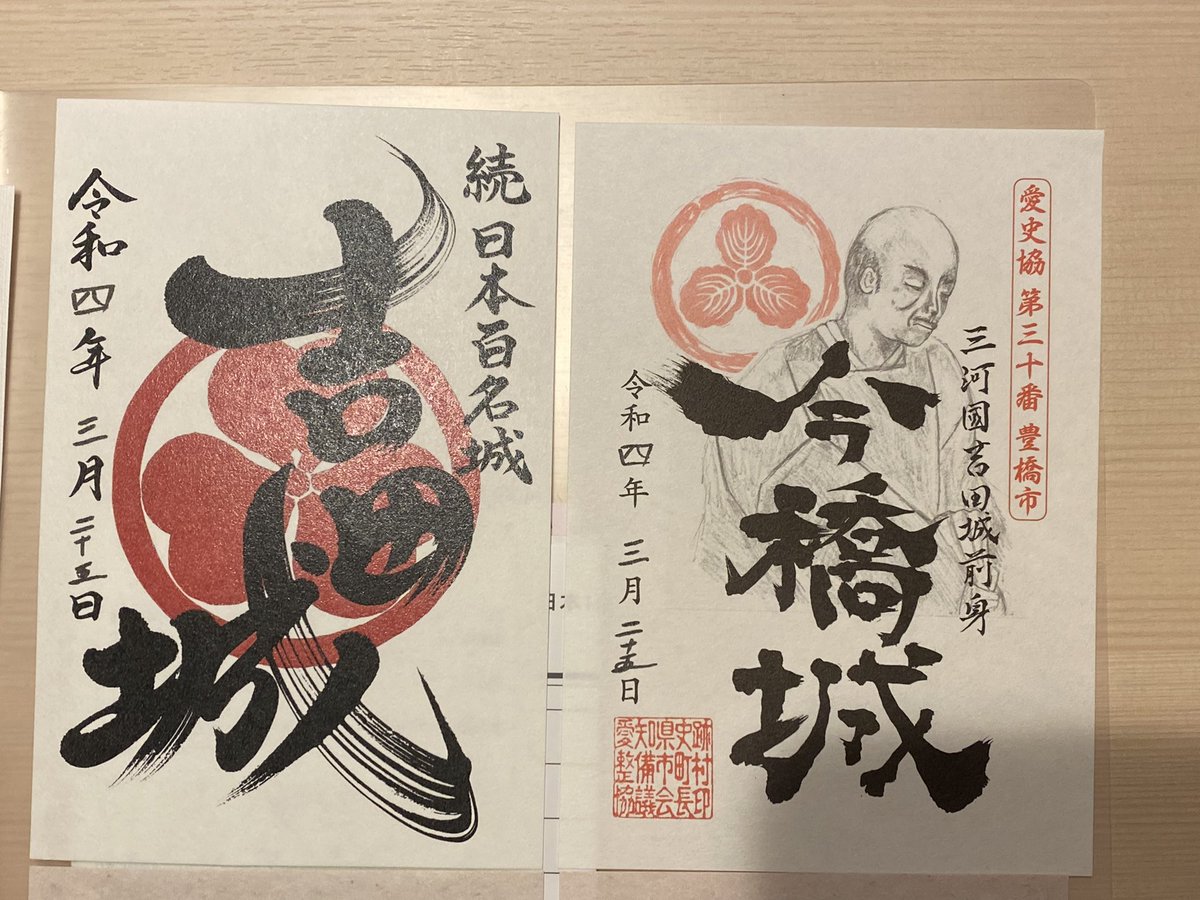 続日本百名城
吉田城
令和四年 三月 二十五日
愛史協 第三十番 豊橋市
三河國吉田城前身
今橋城
令和四年 三月 二十五日
愛知県史跡
整備市町村
協議会長印